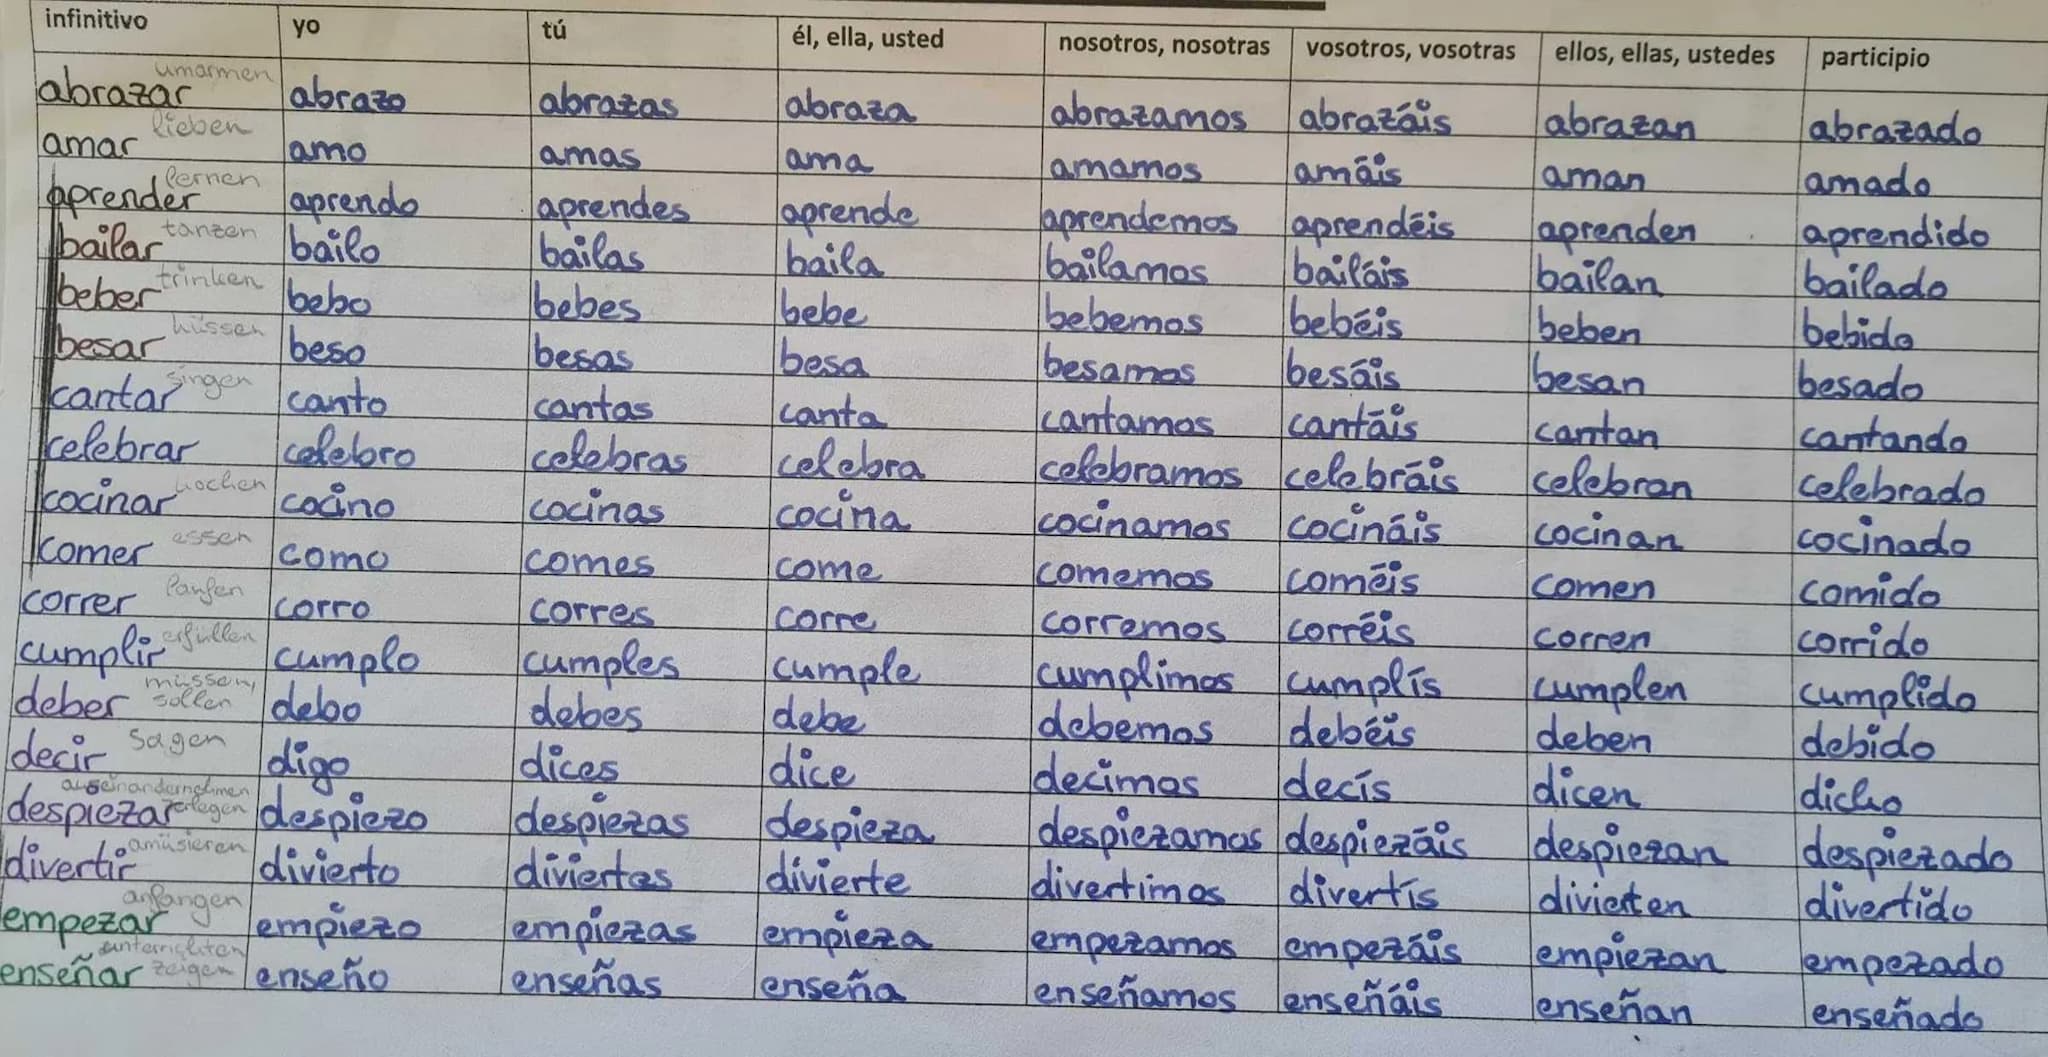 infinitivo yo tú él, ella, usted nosotros, nosotras vosotros, vosotras ellos, ellas, ustedes participio
abrazar umarmen abrazo abrazas abraza abrazamos abrazáis abrazan abrazado
amar lieben amo amas ama amamos amáis aman amado
aprender lernen aprendo aprendes aprende aprendemos aprendéis aprenden aprendido
bailar tanzen bailo bailas baila bailamos bailáis bailan bailado
beber trinken bebo bebes bebe bebemos bebéis beben bebido
besar küssen beso besas besa besamos besáis besan besado
cantar singen canto cantas canta cantamos cantáis cantan cantando
celebrar celebro celebras celebra celebramos celebráis celebran celebrado
cocinar kochen cocino cocinas cocina cocinamos cocináis cocinan cocinado
comer essen como comes come comemos coméis comen comido
correr laufen corro corres corre corremos corréis corren corrido
cumplir erfüllen cumplo cumples cumple cumplimos cumplís cumplen cumplido
deber müssen, sollen debo debes debe debemos debéis deben debido
decir sagen digo dices dice decimos decís dicen dicho
despiezar auseinandernehmen zerlegen despiezo despiezas despieza despiezamos despiezáis despiezan despiezado
divertir amüsieren divierto diviertes divierte divertimos divertís divierten divertido
empezar anfangen empiezo empiezas empieza empezamos empezáis empiezan empezado
enseñar unterrichten zeigen enseño enseñas enseña enseñamos enseñáis enseñan enseñado